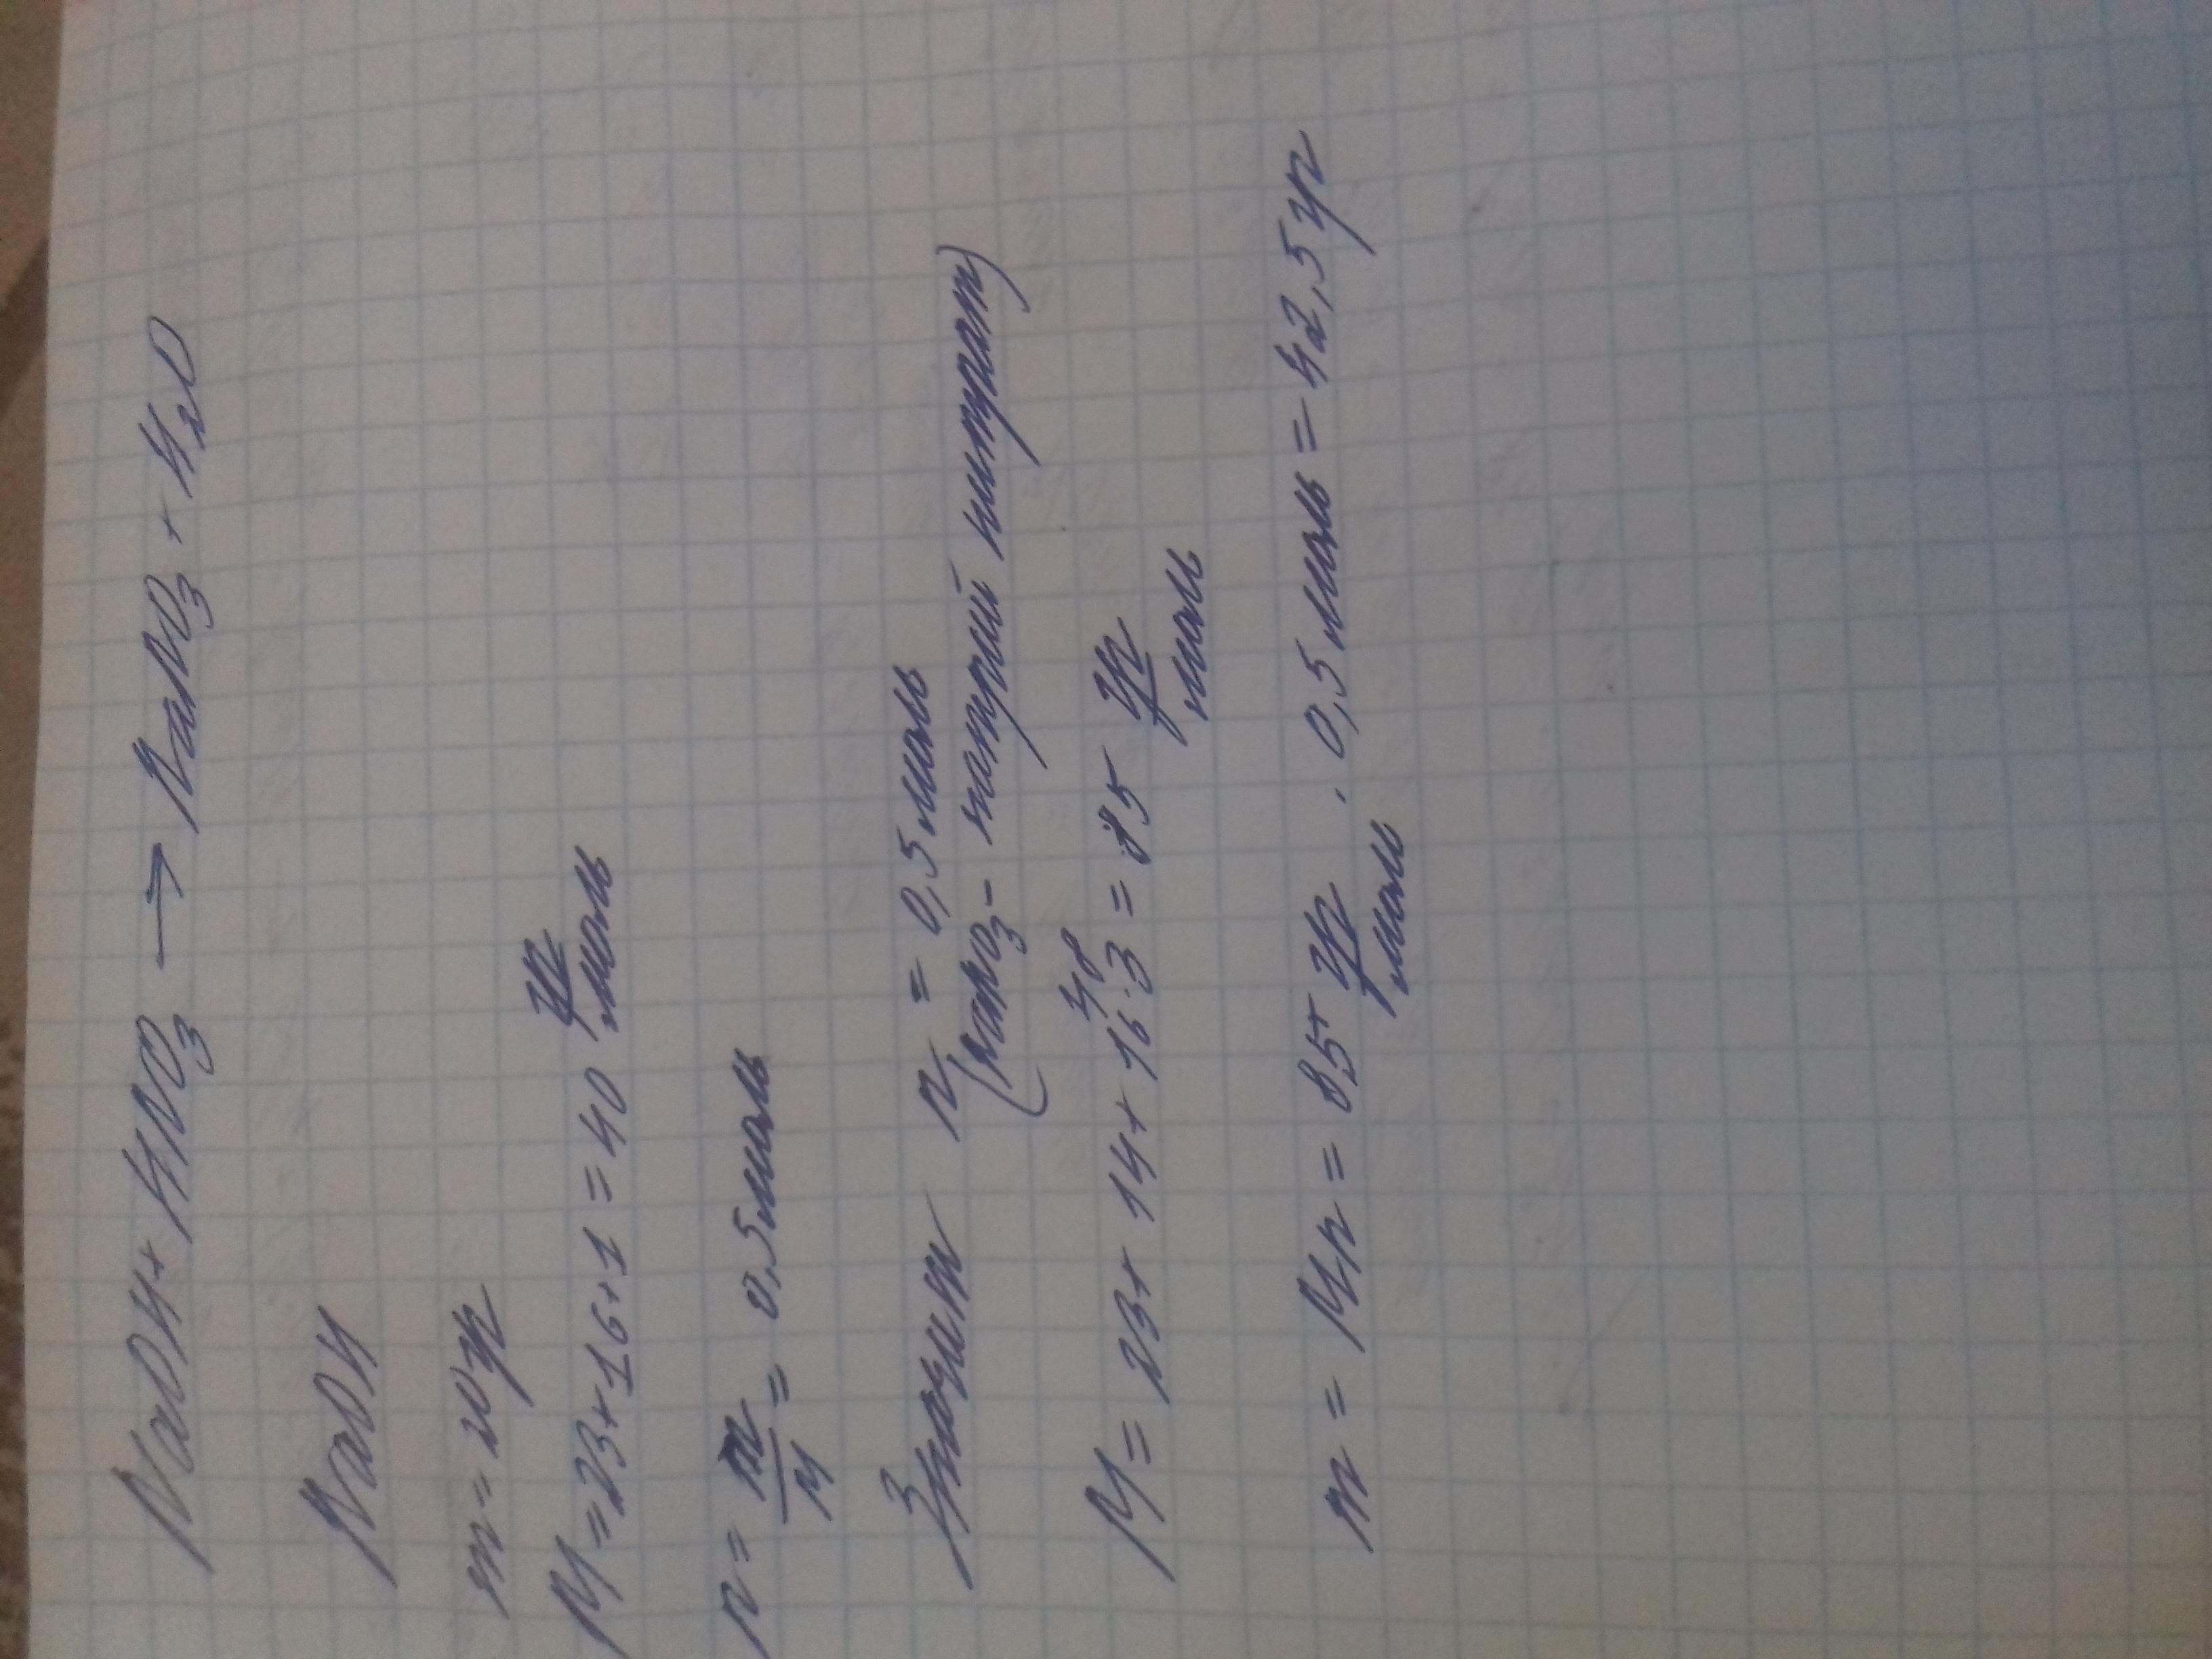 NaOH + HNO3 → NaNO3 + H2O
NaOH
m = 20 гр
M = 23+16+1 = 40 гр/моль
n = m/M = 0,5 моль
Значит n = 0,5 моль
(NaNO3 - натрий нитрат)
48
M = 23 + 14 + 16·3 = 85 гр/моль
m = Mn = 85 гр/моль · 0,5 моль = 42,5 гр